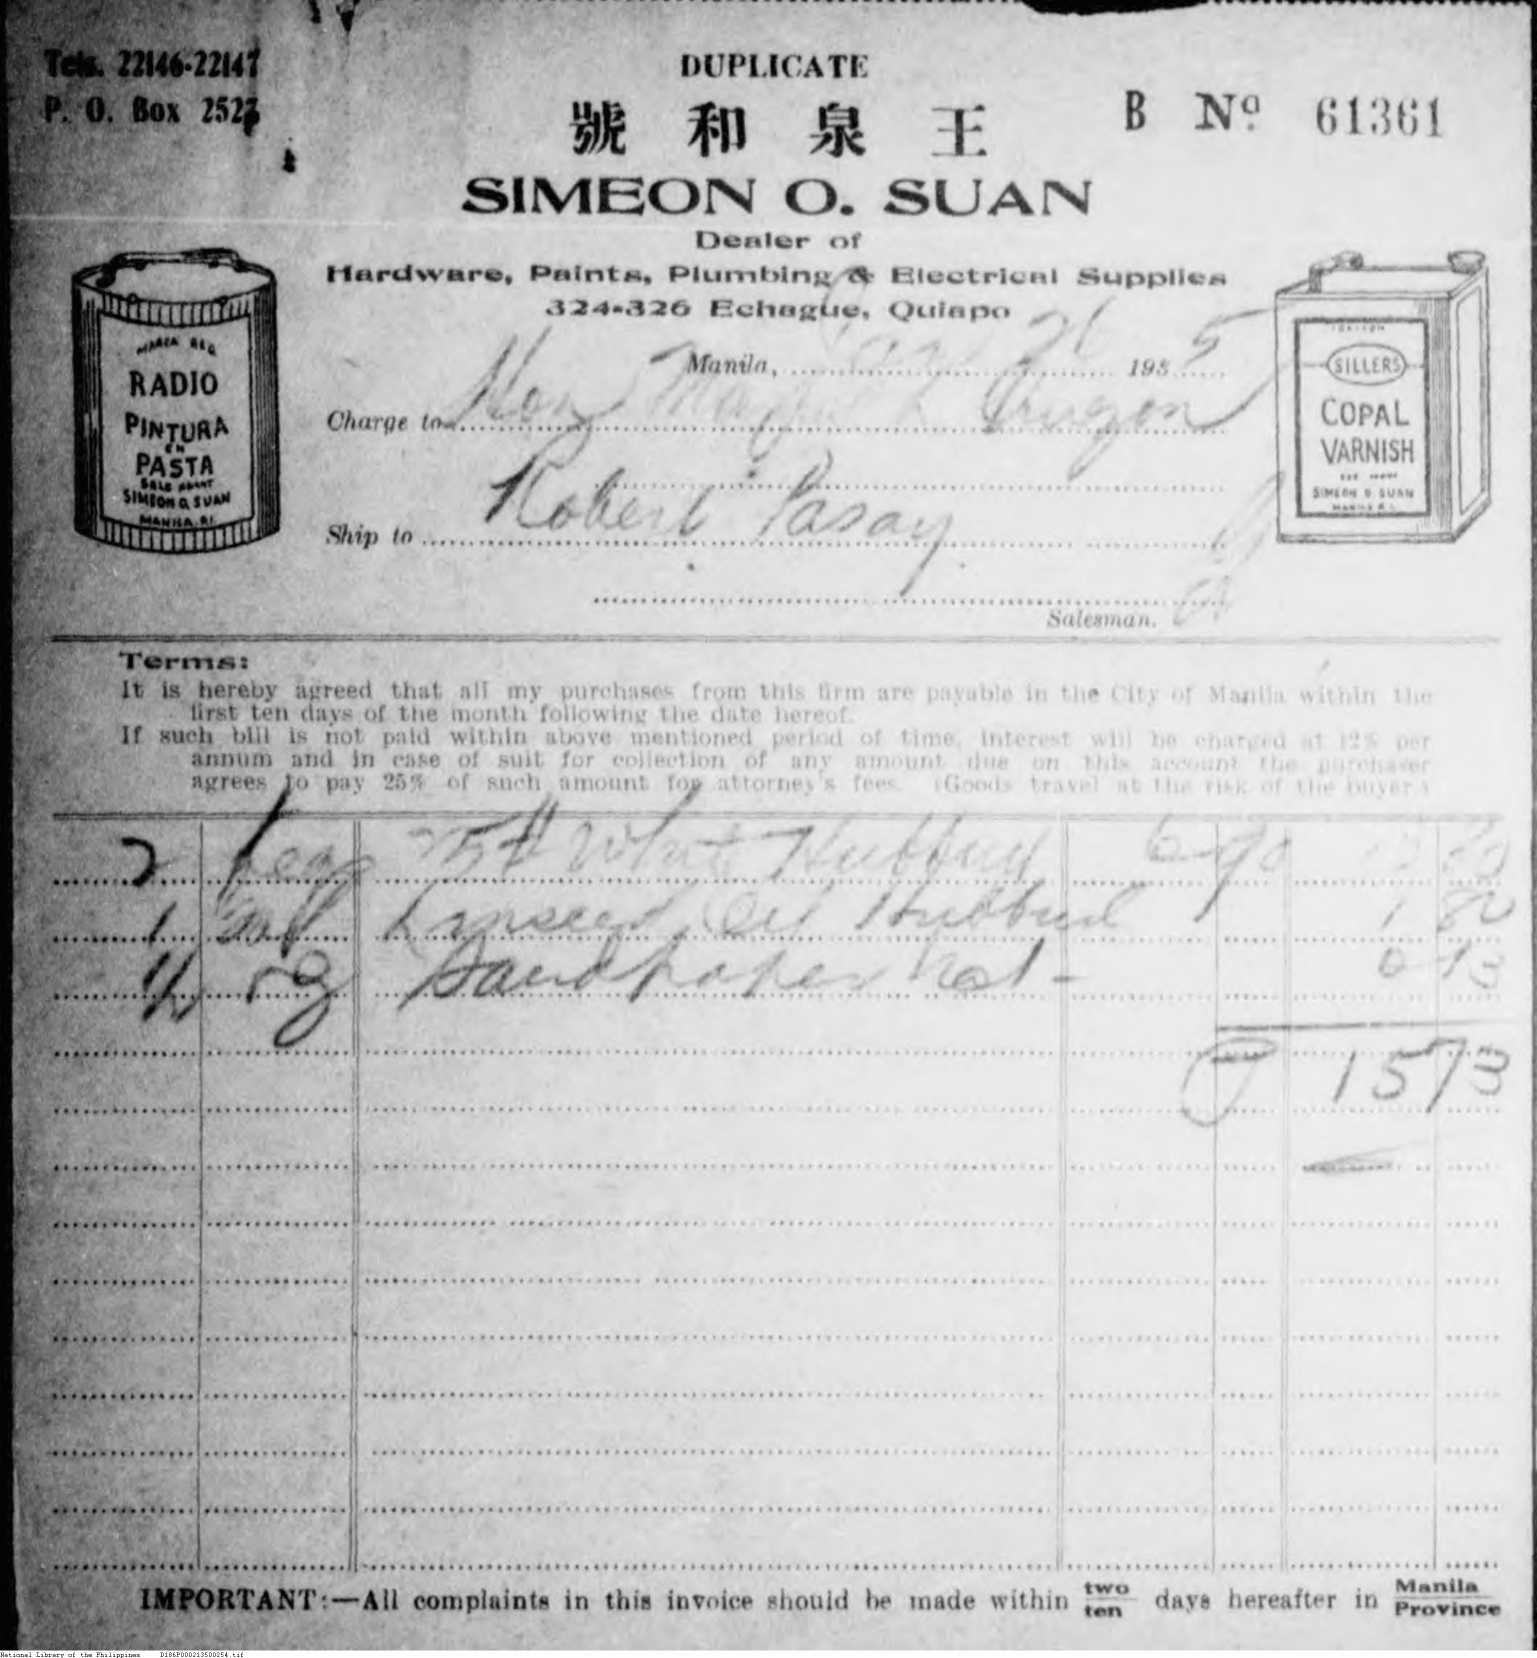 Tels. 22146-22147
P. O. Box 2523
DUPLICATE
B Nº 61361
號 和 泉 王
SIMEON O. SUAN
Dealer of
Hardware, Paints, Plumbing & Electrical Supplies
324-326 Echague, Quiapo
MARCA REG
RADIO
PINTURA
EN
PASTA
SOLE AGENT
SIMEON O. SUAN
MANILA, P.I.
SILLERS
COPAL
VARNISH
SIMEON O. SUAN
MANILA P.I.
Manila, 26 1935
Charge to Hon
Ship to Robert Pasay
Salesman.
Terms:
It is hereby agreed that all my purchases from this firm are payable in the City of Manila within the
first ten days of the month following the date hereof.
If such bill is not paid within above mentioned period of time, interest will be charged at 12% per
annum and in case of suit for collection of any amount due on this account the purchaser
agrees to pay 25% of such amount for attorney's fees. (Goods travel at the risk of the buyer.)
2 kegs 25# White Hubbuck 6 90 13 80
1 Gall Linseed Oil Hubbuck 1 80
Sandpaper 0 13
15 73
IMPORTANT:—All complaints in this invoice should be made within two/ten days hereafter in Manila/Province
National Library of the Philippines D186P000213500254.tif